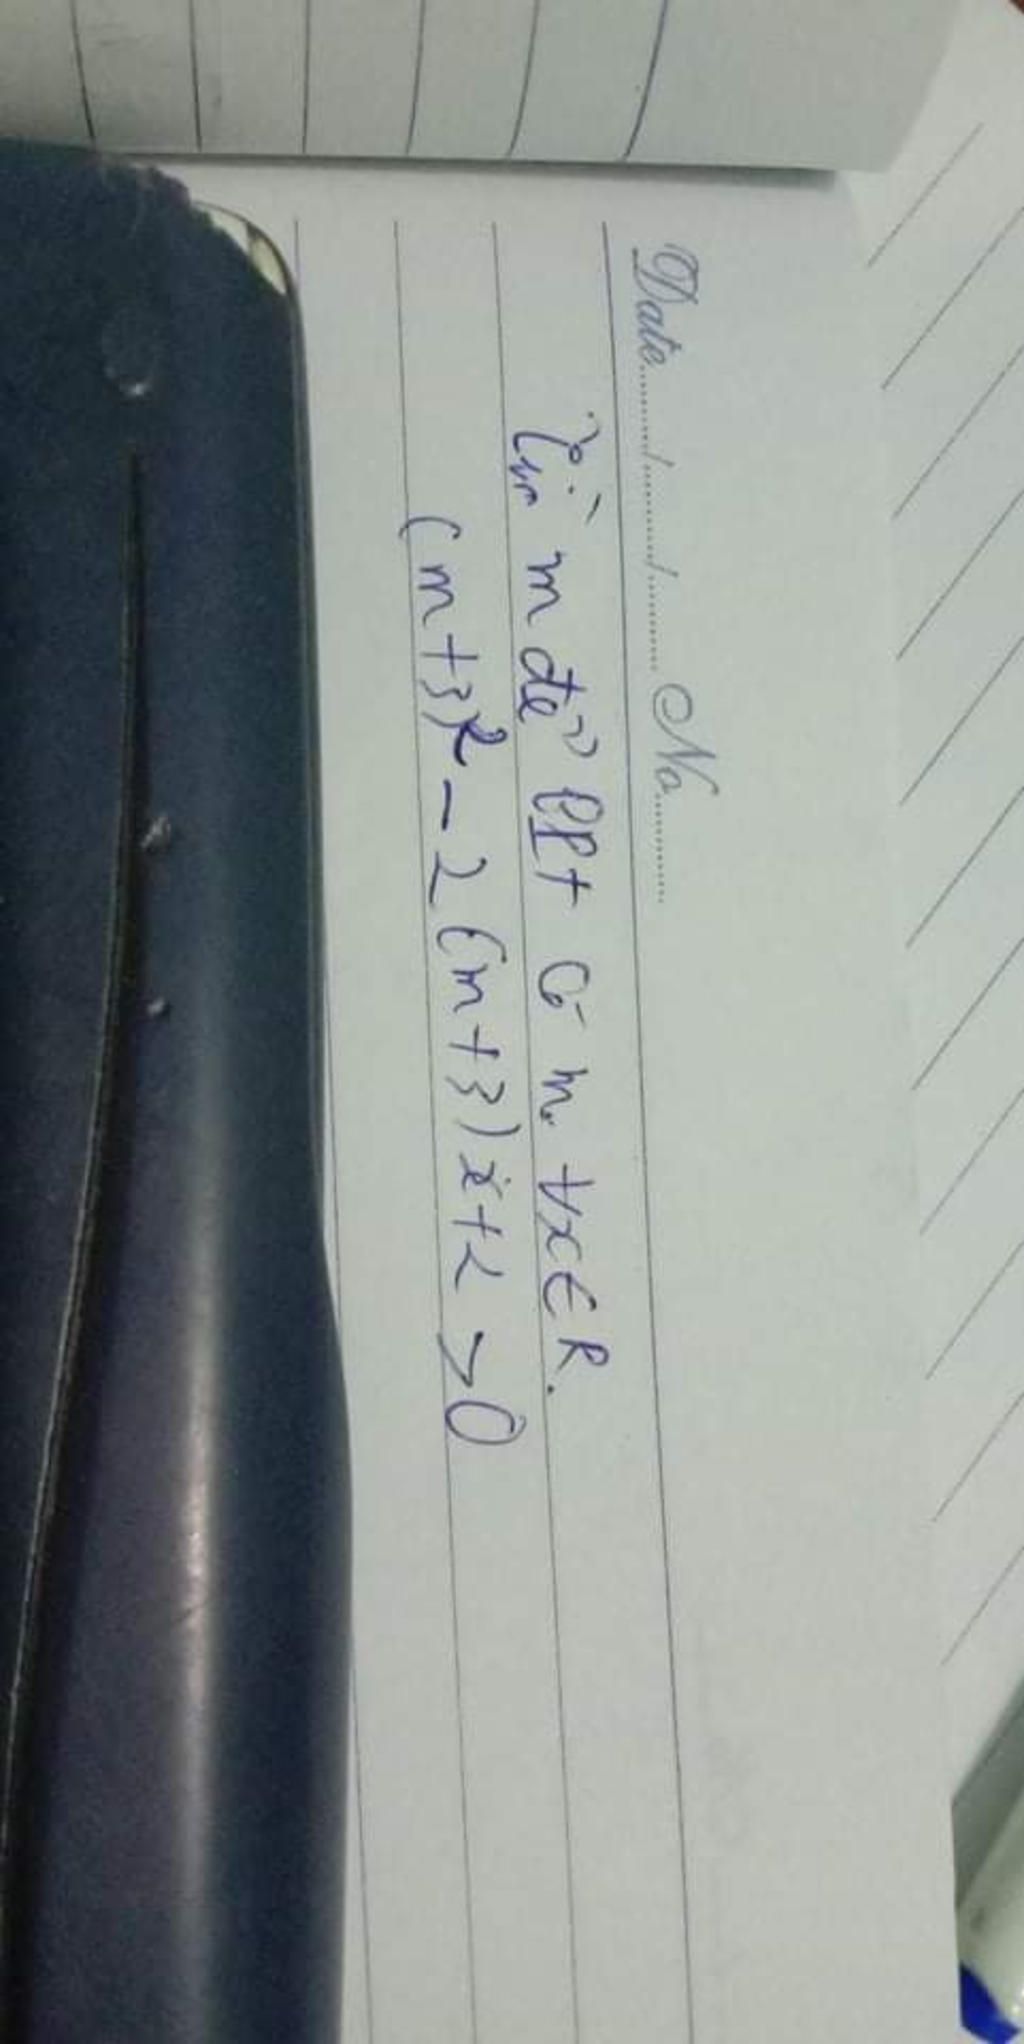 Date......../......../........ No..........
Tìm m để BPT có n. ∀x∈R.
(m+3)x² - 2(m+3)x+2 >0